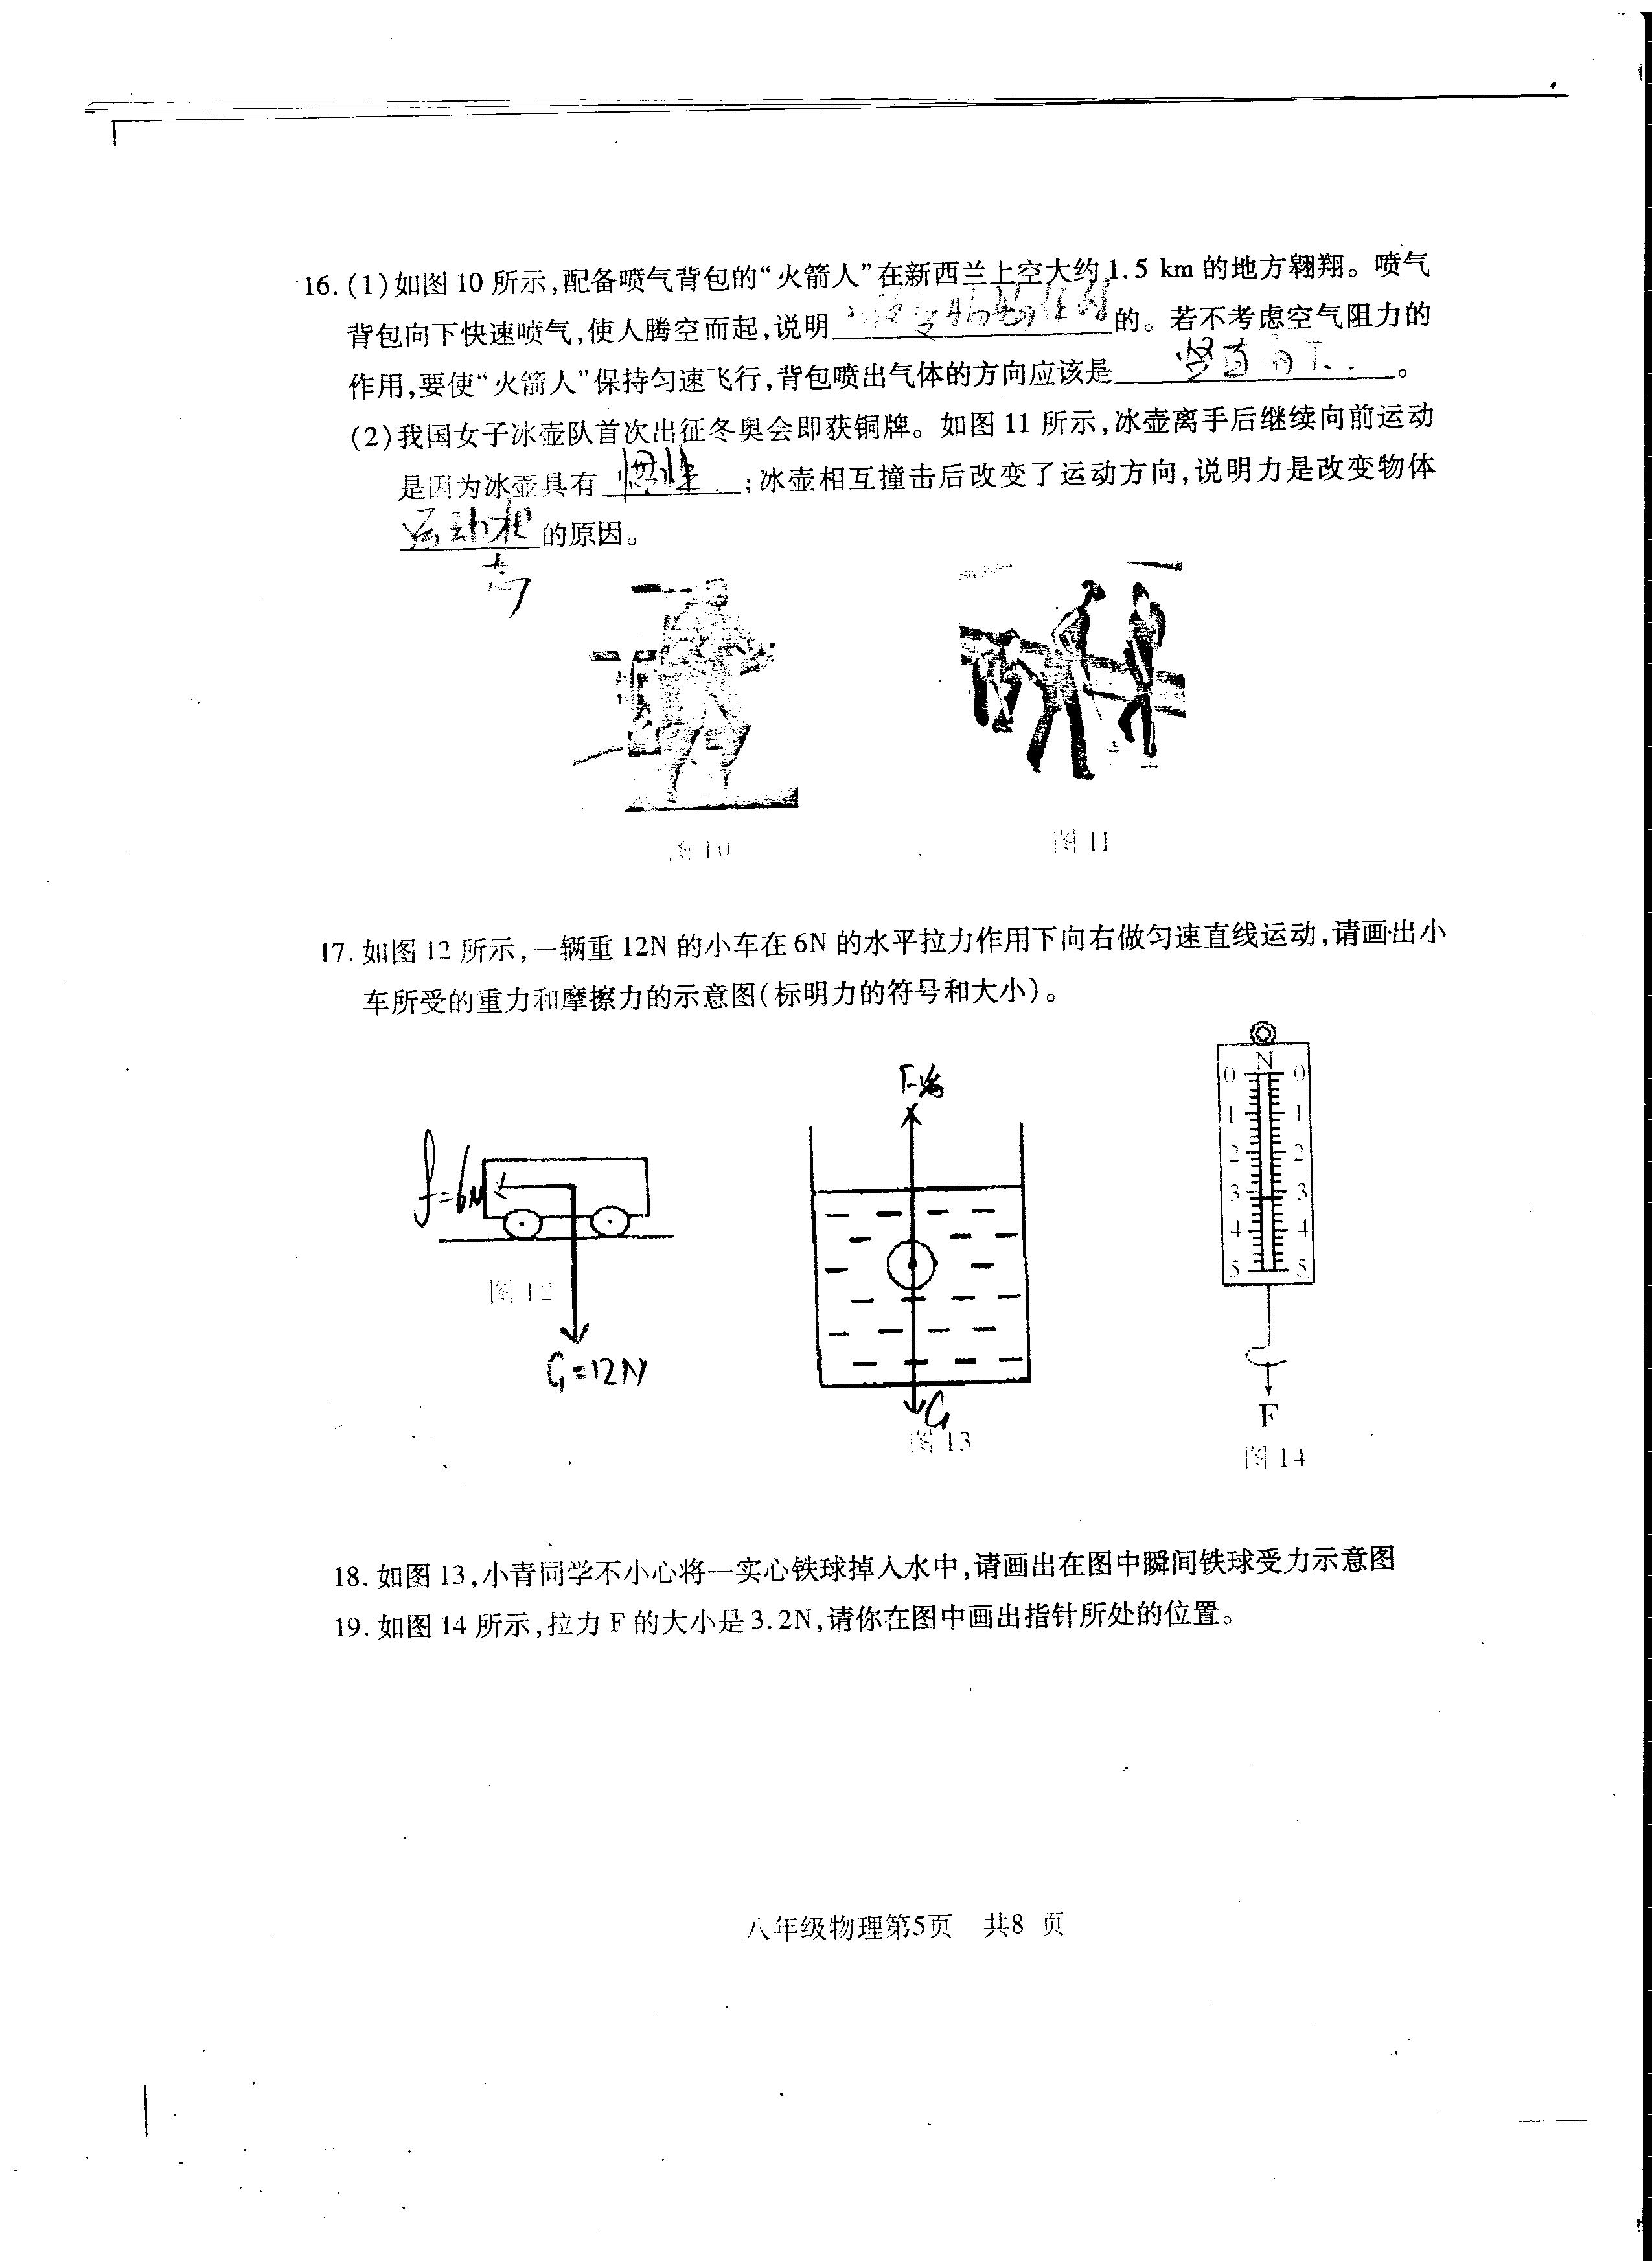 16. (1)如图 10 所示,配备喷气背包的“火箭人”在新西兰上空大约1.5 km 的地方翱翔。喷气
背包向下快速喷气,使人腾空而起,说明 的。若不考虑空气阻力的
作用,要使“火箭人”保持匀速飞行,背包喷出气体的方向应该是 竖直向下 。
(2)我国女子冰壶队首次出征冬奥会即获铜牌。如图 11 所示,冰壶离手后继续向前运动
是因为冰壶具有 惯性 ;冰壶相互撞击后改变了运动方向,说明力是改变物体
运动状态 的原因。
图 10
图 11
17. 如图 12 所示,一辆重 12N 的小车在 6N 的水平拉力作用下向右做匀速直线运动,请画出小
车所受的重力和摩擦力的示意图(标明力的符号和大小)。
f=6N
图 12
G=12N
F浮
G
图 13
N
0 0
1 1
2 2
3 3
4 4
5 5
F
图 14
18. 如图 13,小青同学不小心将一实心铁球掉入水中,请画出在图中瞬间铁球受力示意图
19. 如图 14 所示,拉力 F 的大小是 3.2N,请你在图中画出指针所处的位置。
八年级物理第5页 共8 页